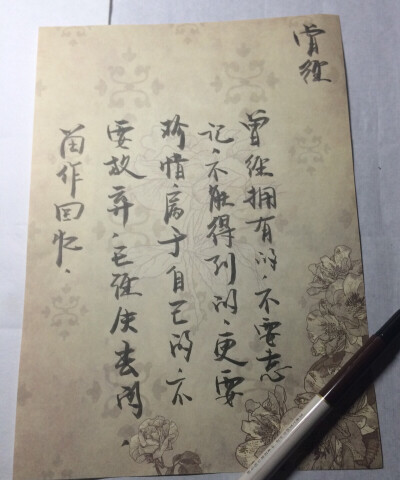 曾经
曾经拥有的，不要忘
记，不能得到的，更要
珍惜，属于自己的，不
要放弃，已经失去的，
留作回忆，